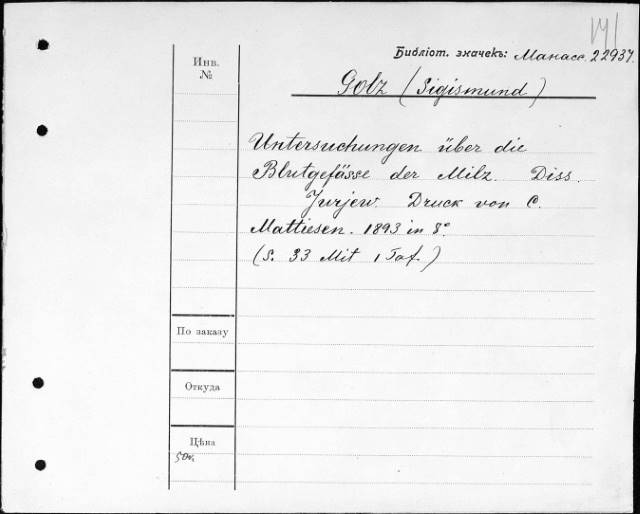 Библіот. значекъ: Манасс. 22937.
Golz (Sigismund)
Инв.
№
Untersuchungen über die
Blutgefässe der Milz. Diss.
Jurjew Druck von C.
Mattiesen. 1893 in 8°
(S. 33 Mit 1 Taf.)
По заказу
Откуда
Цѣна